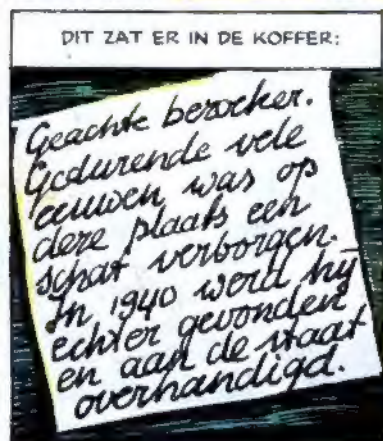 DIT ZAT ER IN DE KOFFER:
Geachte bezoeker.
Gedurende vele
eeuwen was op
deze plaats een
schat verborgen.
In 1940 werd hij
echter gevonden
en aan de staat
overhandigd.